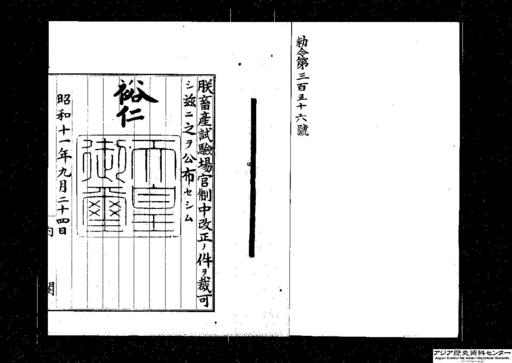 勅令第三百五十六號
朕畜產試驗場官制中改正ノ件ヲ裁可
シ茲ニ之ヲ公布セシム
裕仁
天皇
御璽
昭和十一年九月二十四日
内閣
アジア歴史資料センター
Japan Center for Asian Historical Records